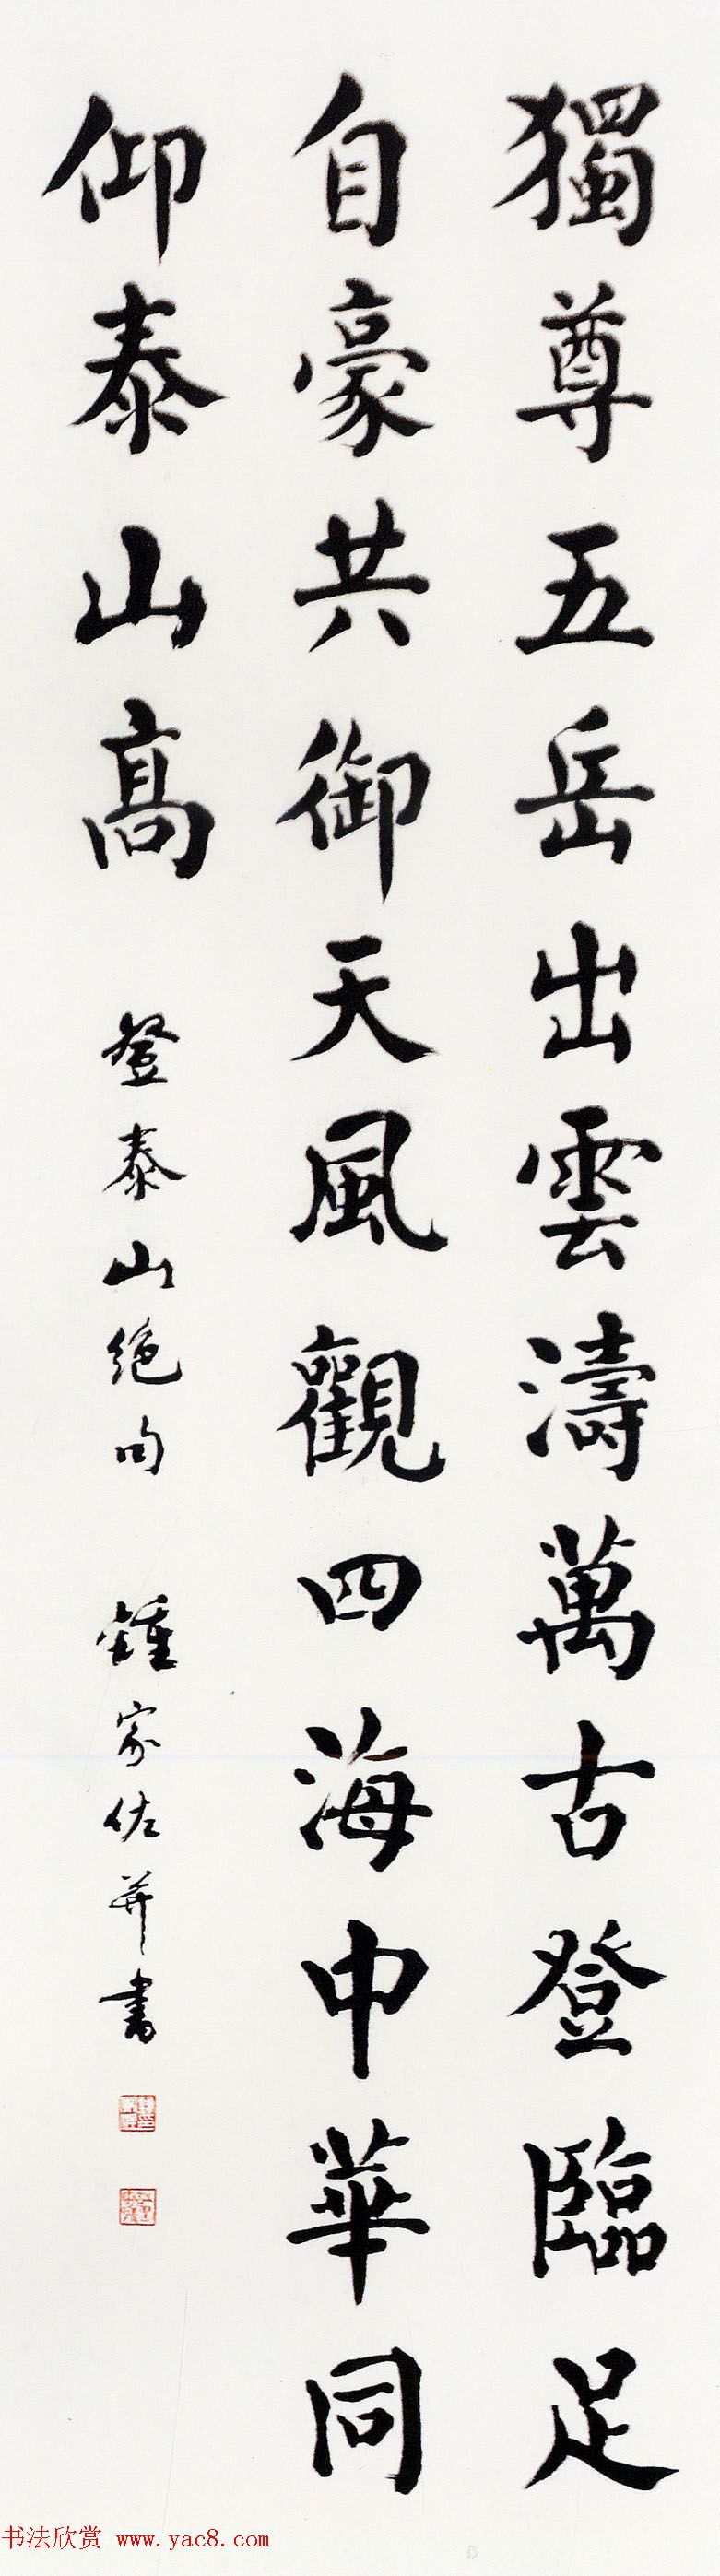 獨尊五岳出雲濤萬古登臨足
自豪共御天風觀四海中華同
仰泰山高
登泰山绝句 鍾家佐并書
书法欣赏 www.yac8.com